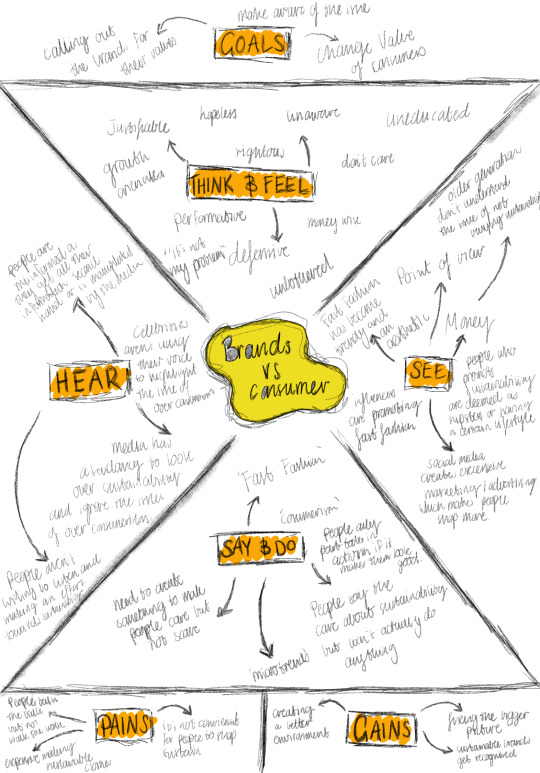 make aware of the issue
calling out
the brand. For
their values
GOALS
Change Value
of Consumers
Justifiable
hopeless
unaware
uneducated
growth
righteous
don't care
THINK & FEEL
performative
money wise
"it's not
my problem"
defensive
unbothered
older generation
don't understand
the issue of not
Point of view
Money
Fast Fashion
has become
trendy and
an
aesthetic
SEE
people who
promote
sustainability
are deemed as
hipsters or having
a certain lifestyle
influencers
are promoting
fast fashion
social media
creates excessive
marketing/advertising
which makes people
shop more
Brands
vs
Consumer
people are
misinformed
they get all their
information second
hand or is manipulated
by the media
HEAR
Celebrities
arent using
their voice
to highlight
the issue of
over consumerism
media has
a tendancy to look
over sustainability
and ignore the issues
of over consumerism
People aren't
willing to listen and
making an effort
towards sustainability
"Fast Fashion"
"consumerism"
SAY & DO
People only
part take in
activism if it
makes them look
good.
need to create
something to make
people care but
not scare
"microtrends"
People say they
care about sustainability
but won't actually do
anything
People talk
the talk
but not
walk the walk
PAINS
it's not convenient
for people to shop
sustain
expensive making
sustainable
clothes
creating
a better
environment
GAINS
fixing the bigger
picture
sustainable brands
get recognised